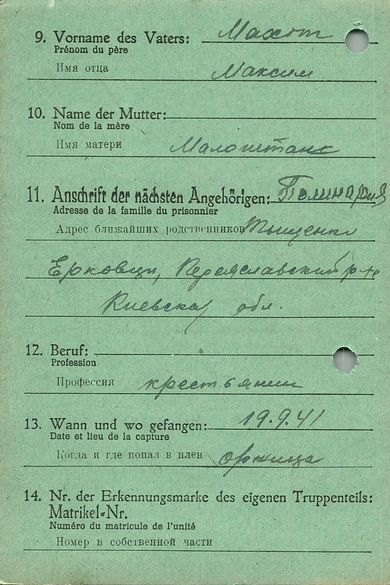 9. Vorname des Vaters: Махот
Prénom du père
Имя отца Максим
10. Name der Mutter:
Nom de la mère
Имя матери Малоштан
11. Anschrift der nächsten Angehörigen:
Adresse de la famille du prisonnier
Адрес ближайших родственников Тыщенко
Ерковци, Переяславский р-н
Киевская обл.
12. Beruf:
Profession
Профессия крестьянин
13. Wann und wo gefangen: 19.9.41
Date et lieu de la capture
Когда и где попал в плен оржица
14. Nr. der Erkennungsmarke des eigenen Truppenteils:
Matrikel-Nr.
Numéro du matricule de l'unité
Номер в собственной части